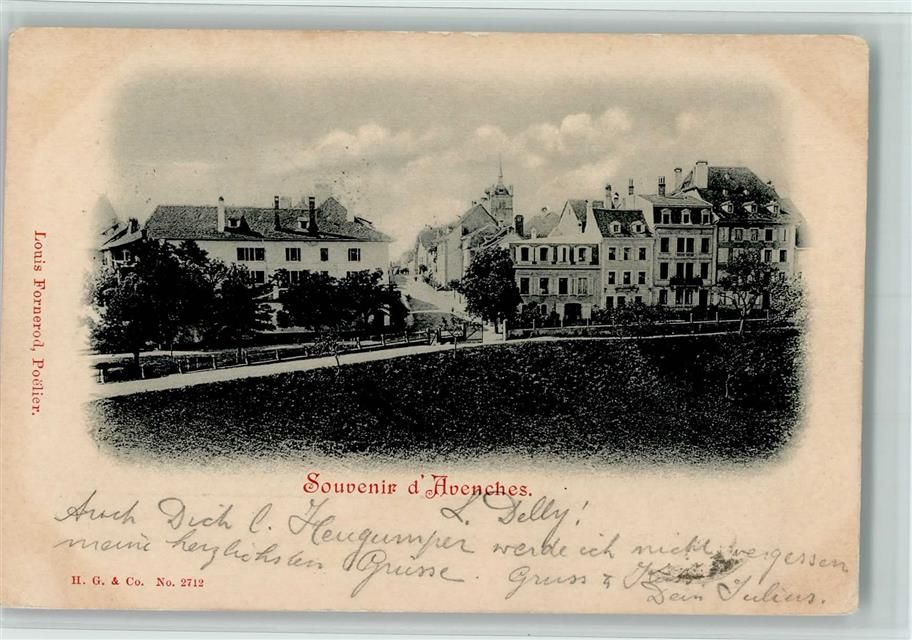 Louis Fornerod, Poëlier.
Souvenir d'Avenches.
L. Delly!
Auch Dich l. Heugumper werde ich nicht vergessen
meine herzlichsten Grüsse. Gruss &
Dein Julius.
H. G. & Co. No. 2712